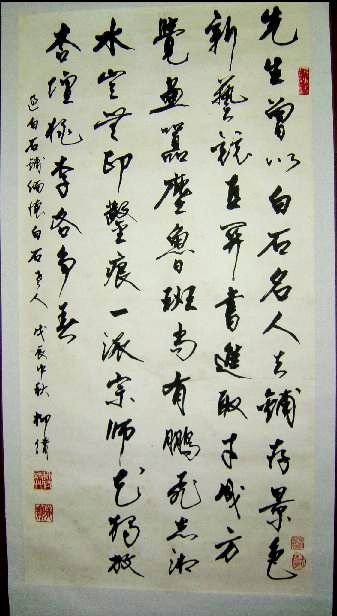 先生曾以白石名人去鋪存景色
新藝競書進取才成方
覺畫囂塵魯班尚有鵬飛志湘
水豈無印鑿痕一派宗師花獨放
杏壇桃李各爭春
過白石鋪緬懷白石老人 戊辰中秋 柳倩